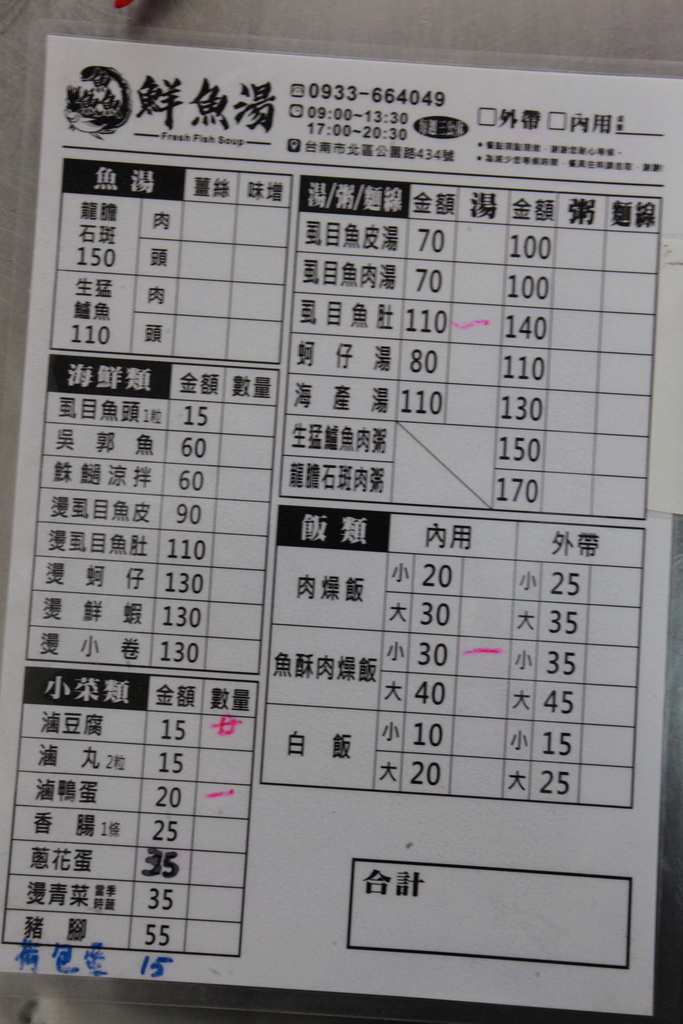 鮮魚湯
Fresh Fish Soup
0933-664049
09:00~13:30
17:00~20:30
台南市北區公園路434號
□外帶 □內用
魚湯 薑絲 味增
龍膽石斑 150 肉
頭
生猛鱸魚 110 肉
頭
海鮮類 金額 數量
虱目魚頭1粒 15
吳郭魚 60
鮢鰓涼拌 60
燙虱目魚皮 90
燙虱目魚肚 110
燙蚵仔 130
燙鮮蝦 130
燙小卷 130
小菜類 金額 數量
滷豆腐 15
滷丸2粒 15
滷鴨蛋 20 一
香腸1條 25
蔥花蛋 35
燙青菜 當季時蔬 35
豬腳 55
荷包蛋 15
湯/粥/麵線 金額 湯 金額 粥 麵線
虱目魚皮湯 70 100
虱目魚肉湯 70 100
虱目魚肚 110 一 140
蚵仔湯 80 110
海產湯 110 130
生猛鱸魚肉粥 150
龍膽石斑肉粥 170
飯類 內用 外帶
肉燥飯 小 20 小 25
大 30 大 35
魚酥肉燥飯 小 30 一 小 35
大 40 大 45
白飯 小 10 小 15
大 20 大 25
合計